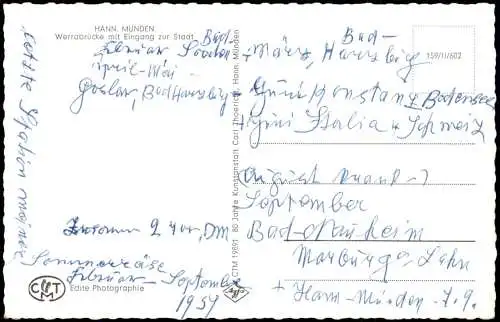 HANN. MÜNDEN
Werrabrücke mit Eingang zur Stadt
Bad
Februar
April - Mai
Goslar, Bad Harzburg
Bad-
März, Harzburg
159/I/602
Juni Konstanz Bodensee
+ Juni Italia + Schweiz
August
September
Bad-Nauheim
Marburg a. Lahn
+ Hann-Münden 7.9.
letzte Station meiner
Sommerreise
2 DM
Februar - September
1959
CMT
Echte Photographie
CTM 19891 80 Jahre Kunstanstalt Carl Thoericht, Hann. Münden